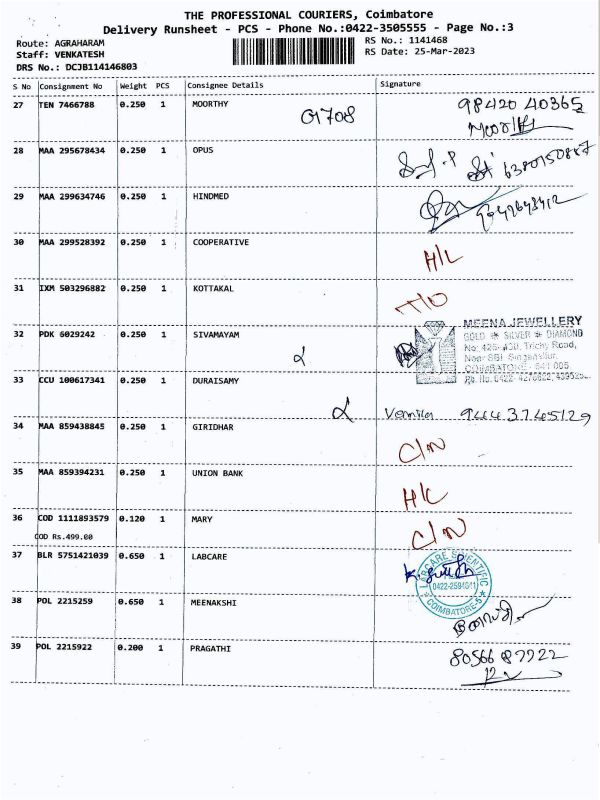 THE PROFESSIONAL COURIERS, Coimbatore
Delivery Runsheet - PCS - Phone No.:0422-3505555 - Page No.:3
Route: AGRAHARAM
Staff: VENKATESH
DRS No.: DCJB114146803
RS No.: 1141468
RS Date: 25-Mar-2023
S No Consignment No Weight PCS Consignee Details Signature
27 TEN 7466788 0.250 1 MOORTHY 98420 40365
28 MAA 295678434 0.250 1 OPUS
29 MAA 299634746 0.250 1 HINDMED
30 MAA 299528392 0.250 1 COOPERATIVE H/L
31 IXM 503296882 0.250 1 KOTTAKAL
32 PDK 6029242 0.250 1 SIVAMAYAM
MEENA JEWELLERY
GOLD SILVER DIAMOND
Trichy Road,
33 CCU 100617341 0.250 1 DURAISAMY
34 MAA 859438845 0.250 1 GIRIDHAR C/N
35 MAA 859394231 0.250 1 UNION BANK H/L
36 COD 1111893579 0.120 1 MARY C/N
COD Rs.499.00
37 BLR 5751421039 0.650 1 LABCARE
LABCARE SCIENTIFIC
COIMBATORE-5
38 POL 2215259 0.650 1 MEENAKSHI
39 POL 2215922 0.200 1 PRAGATHI